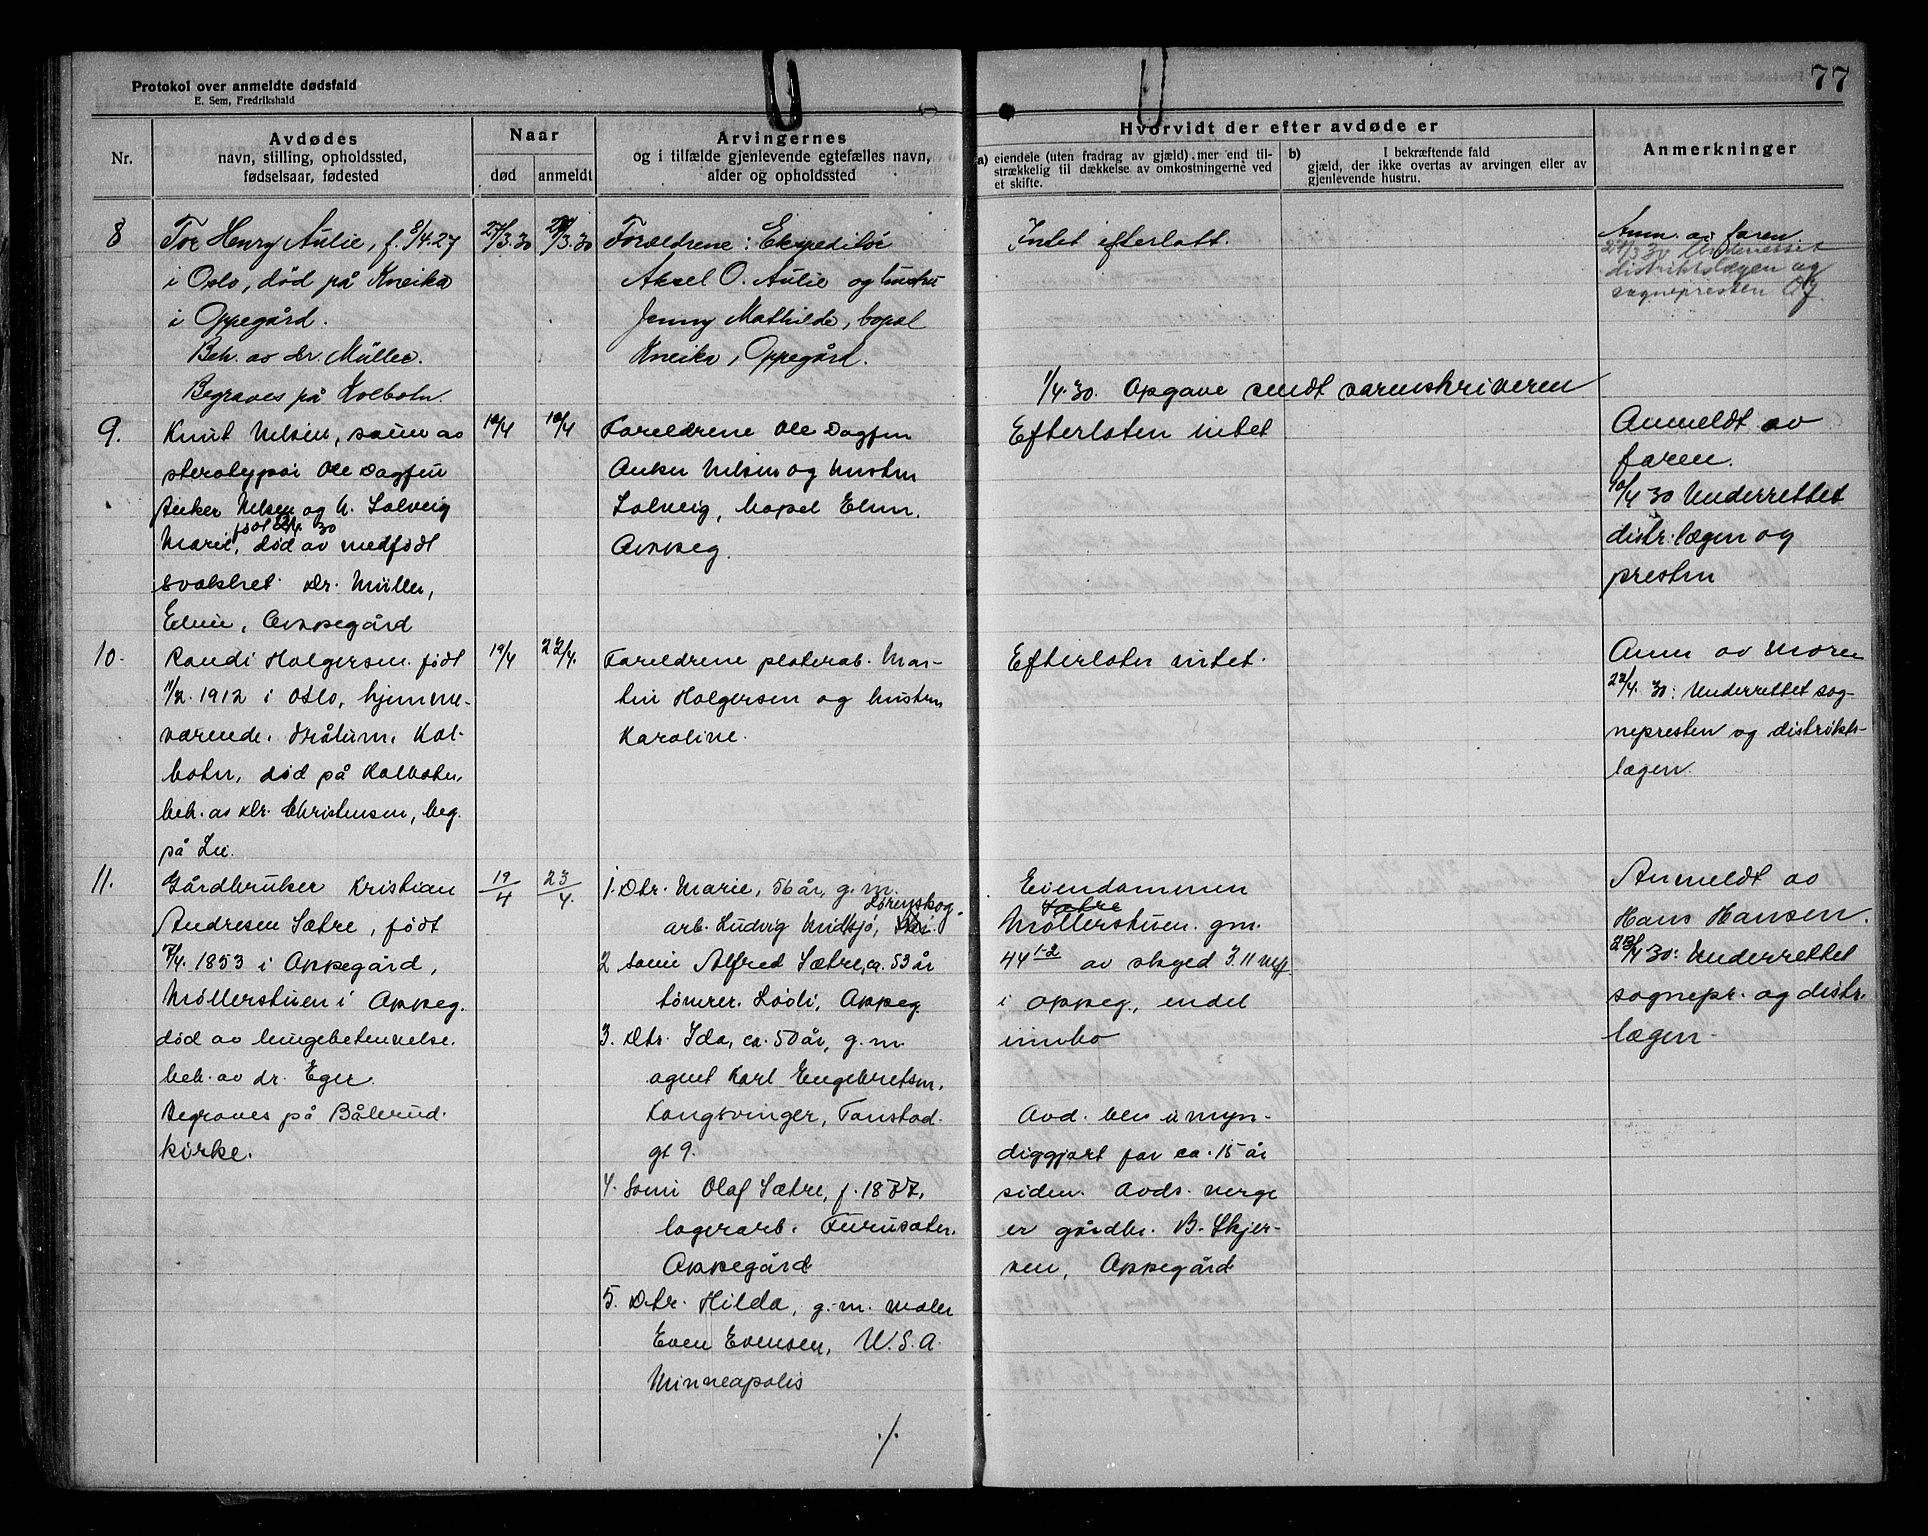 Protokol over anmeldte dødsfald
E. Sem, Fredrikshald
77
Nr.
Avdødes
navn, stilling, opholdssted,
fødselsaar, fødested
Naar
død
anmeldt
Arvingernes
og i tilfælde gjenlevende egtefælles navn,
alder og opholdssted
Hvorvidt der efter avdøde er
a) eiendele (uten fradrag av gjæld) mer end til-
strækkelig til dækkelse av omkostningerne ved
et skifte.
b) I bekræftende fald
gjæld, der ikke overtas av arvingen eller av
gjenlevende hustru.
Anmerkninger
8
Tor Henry Aulie, f. 8/4.27
i Oslo, død på Kneika
i Oppegård.
Beh. av dr. Müller.
Begraves på Kolbotn.
27/3.30
28/3.30
Forældrene: Ekspeditør
Aksel O. Aulie og hustru
Jenny Mathilde, bopæl
Kneika, Oppegård.
Intet efterlatt.
1/4.30. Opgave sendt sorenskriveren
Anm. av faren
distriktslægen og
sognepresten
9.
Knut Nilsen, sønn av
sterotypør Ole Dagfin
Anker Nilsen og h. Solveig
Marie, død av medfødt
svakhet. Dr. Müller,
Oppegård
10/4
Foreldrene Ole Dagfin
Anker Nilsen og hustru
Solveig, bopel
Oppeg.
Efterloten intet
Anmeldt av
faren.
10/4 30 Underrettet
distr.lægen og
presten
10.
Randi Holgersen født
11/2. 1912 i Oslo, hjemme-
værende. Kol-
botn, død på Kolbotn,
beh. av dr. Christensen, beg.
på
19/4
22/4.
Foreldrene platearb. Mar-
tin Holgersen og hustru
Karoline.
Efterloten intet.
Anm av moren
22/4. 30: Underrettet sog-
nepresten og distrikts-
lægen.
11.
Gårdbruker Kristian
Andresen Sætre, født
7/4. 1853 i Oppegård,
Møllerstuen i Oppeg.
død av lungebetennelse.
beh. av dr. Eger.
Begraves på Bålerud
kirke.
19/4
23/4.
1. Dtr. Marie, 56 år, g. m.
Lørenskog.
arb. Ludvig Midsjø,
2 Sønn Alfred Sætre, ca. 53 år
tømrer. Oppeg.
3. Dtr. Ida, ca. 50 år, g. m.
agent Karl Engebretsen,
Kongsvinger, Tanstad
gt 9.
4. Sønn Olaf Sætre, f. 1877,
lagerarb. Furusæter.
Oppegård
5. Dtr. Hilda, g. m. maler
Even Evensen, U.S.A.
Minneapolis
./.
Eiendommen
Sætre
Møllerstuen. gnr.
44 1-2 av skyld 3.11
i Oppeg., endel
innbo
Avd. blev umyn-
diggjort for ca. 15 år
siden. Avds. verge
er gårdbr. B. Skjer-
ven, Oppegård
Anmeldt av
Hans Hansen.
23/4 30: Underrettet
sognepr. og distr.
lægen.